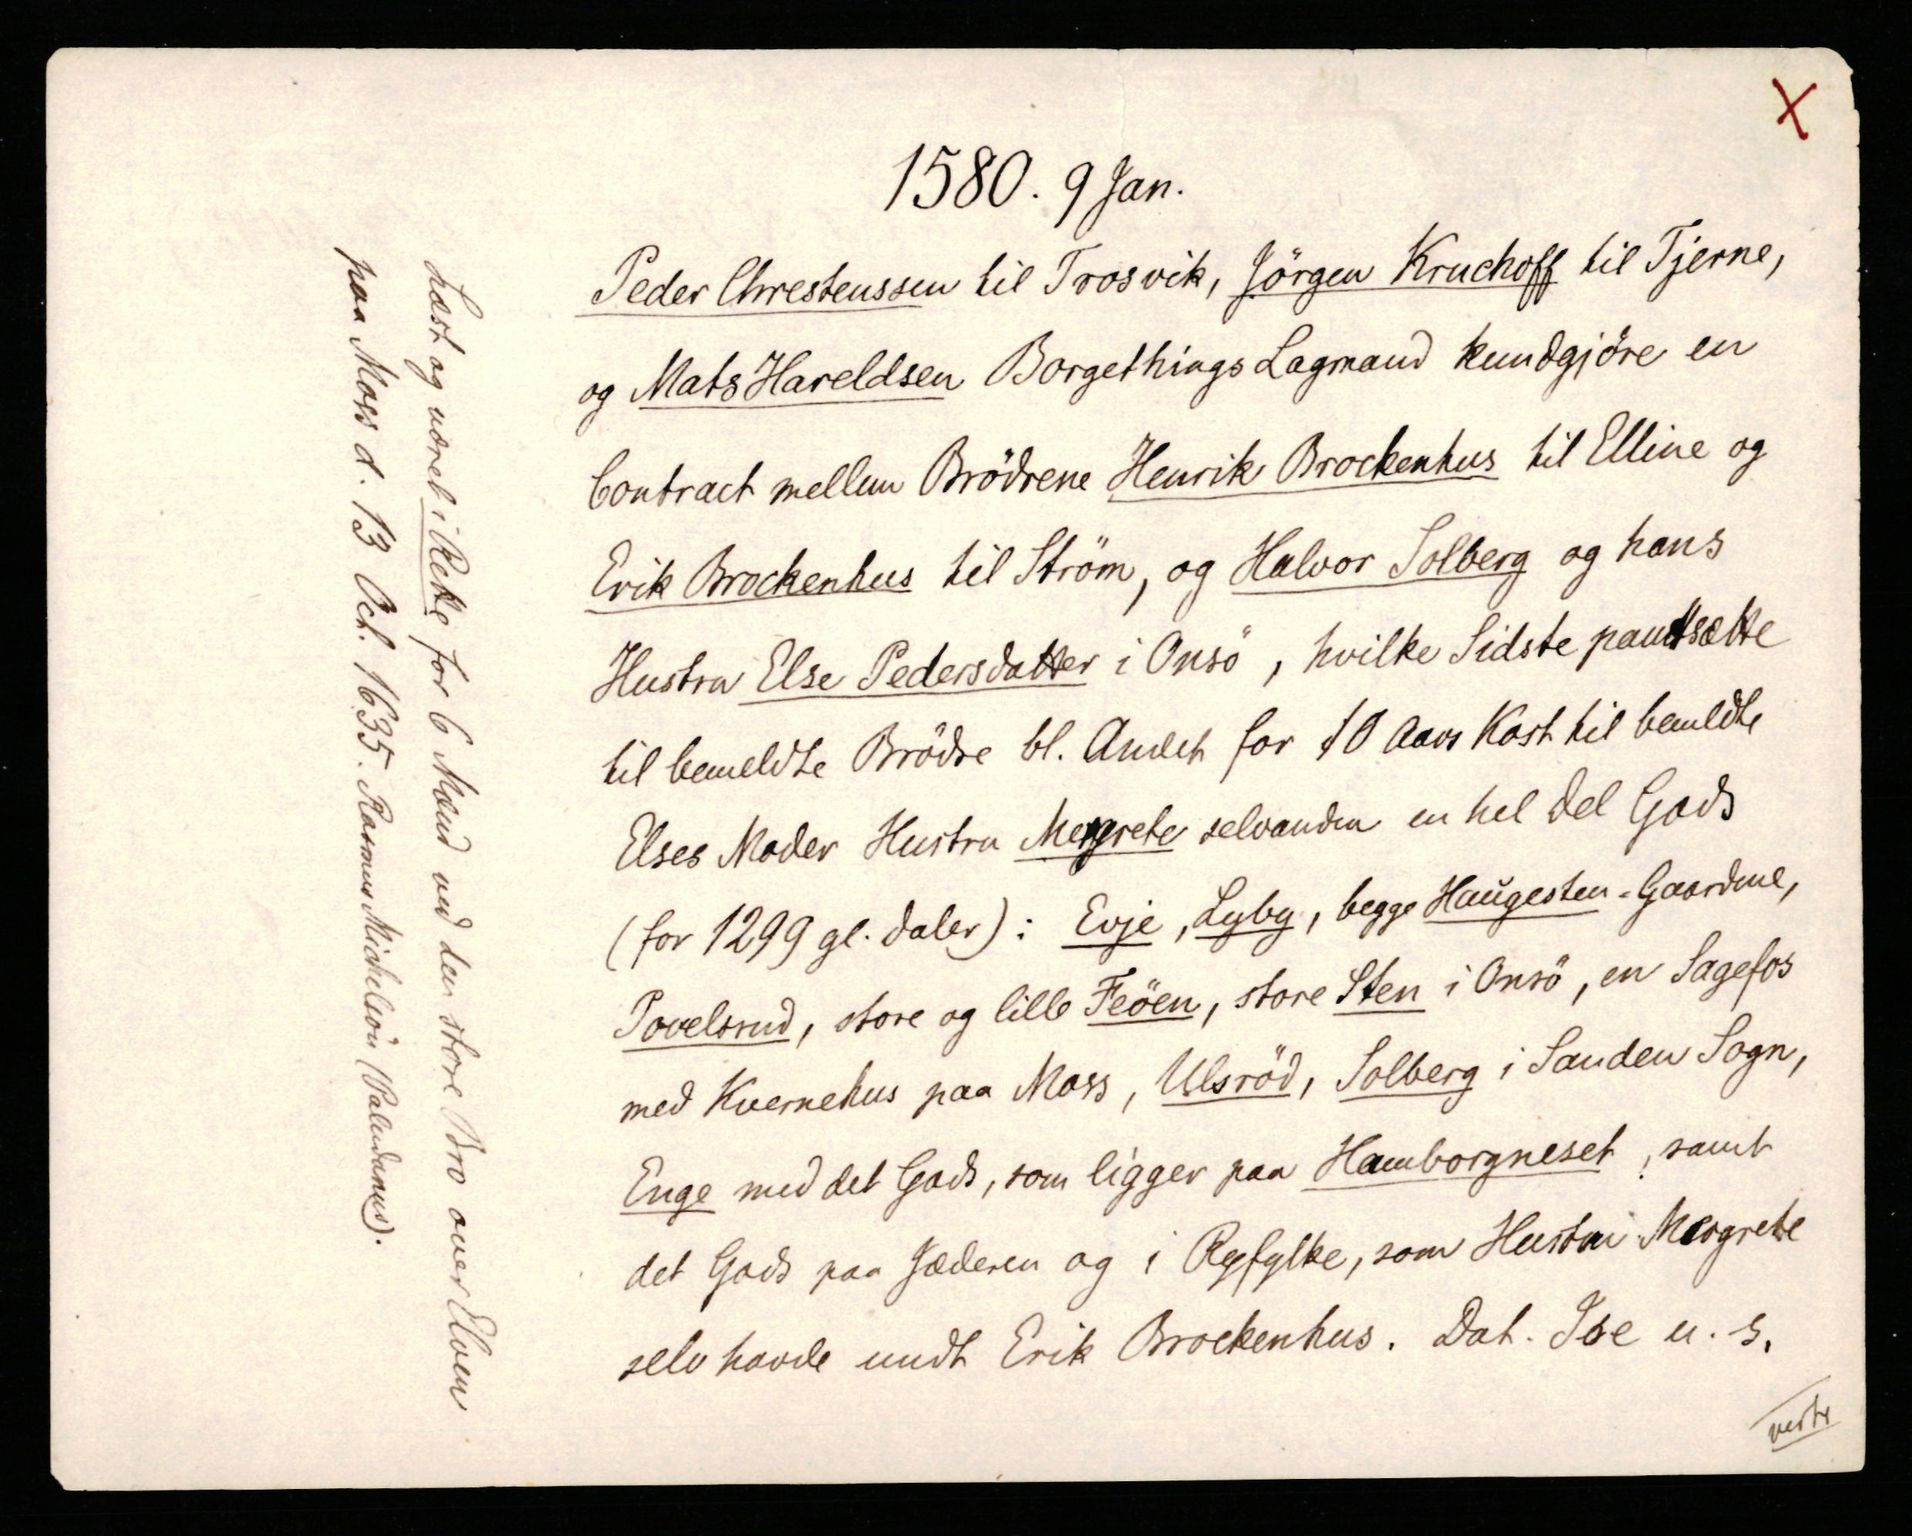 X
1580. 9 Jan.
Peder Chrestenssen til Trosvik, Jörgen Kruckoff til Tjerne,
og Mats Hareldsen Borgethings Lagmand kundgjöre en
Contract mellem Brödrene Henrik Brockenhus til Elline og
Erik Brockenhus til Ström, og Halvor Solberg og hans
Hustru Else Pedersdatter i Onsö, hvilke Sidste pantsætte
til bemeldte Brödre bl. Andet for 10 Aars Kost til bemeldte
Elses Moder Hustru Mergrete selvanden en hel Del Gods
(for 1299 gl. Daler): Evje, Lyby, begge Haugesten-Gaardene,
Povelsrud, store og lille Feöen, store Sten i Onsö, en Sagefos
med Kvernehus paa Moss, Ulsröd, Solberg i Sanden Sogn,
Enge med det Gods, som ligger paa Hamborgneset, samt
det Gods paa Jæderen og i Ryfylke, som Hustru Mergrete
selv havde undt Erik Brockenhus. Dat. Ise u. s.
verte
Læst og været i Rette for 6 Mænd ved den store Bro over Elven
paa Moss d. 13 Oct. 1635. Rasmus Michelsön (Paludanus).